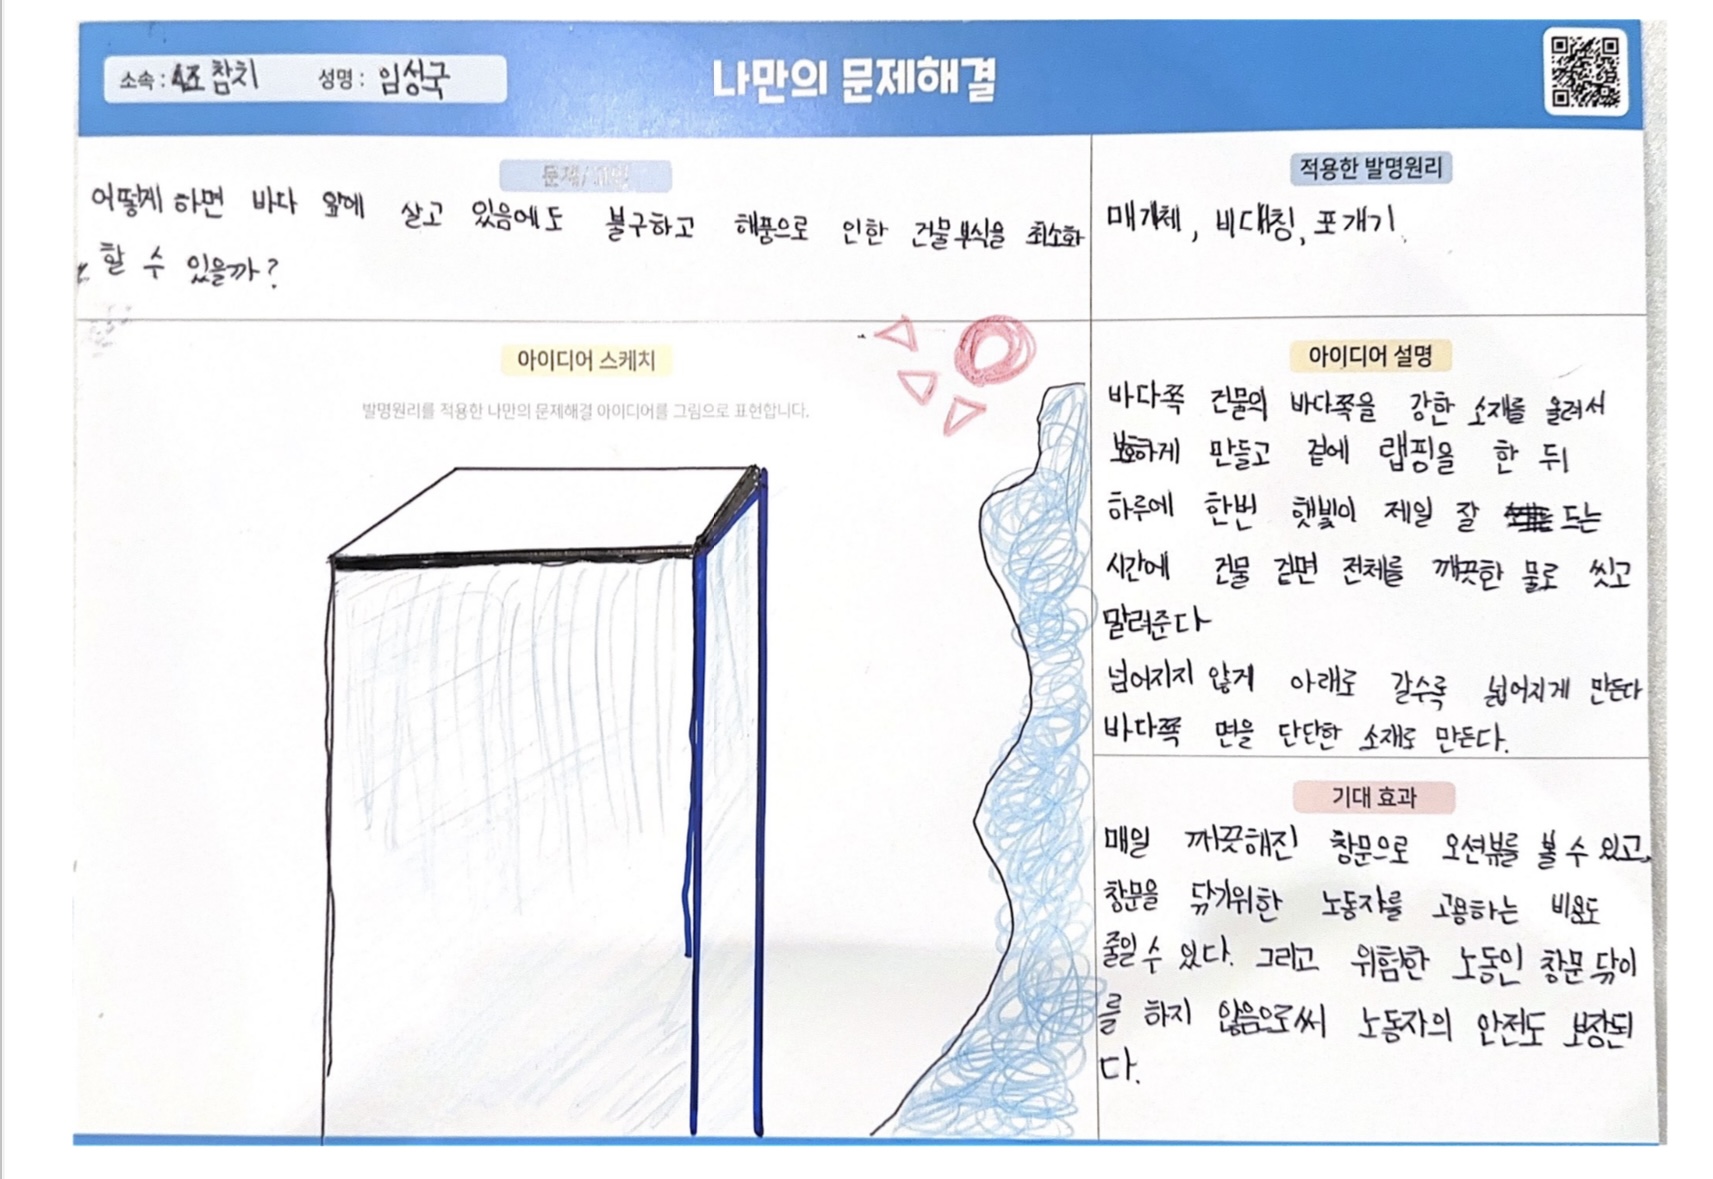 소속 : 4조 참치 성명 : 임성국
나만의 문제해결
문제/고민
어떻게 하면 바다 앞에 살고 있음에도 불구하고 해풍으로 인한 건물 부식을 최소화
할 수 있을까?
적용한 발명원리
매개체, 비대칭, 포개기.
아이디어 스케치
발명원리를 적용한 나만의 문제해결 아이디어를 그림으로 표현합니다.
아이디어 설명
바다쪽 건물의 바다쪽을 강한 소재를 올려서
보호하게 만들고 겉에 랩핑을 한 뒤
하루에 한번 햇빛이 제일 잘 드는
시간에 건물 겉면 전체를 깨끗한 물로 씻고
말려준다
넘어지지 않게 아래로 갈수록 넓어지게 만든다
바다쪽 면을 단단한 소재로 만든다.
기대 효과
매일 깨끗해진 창문으로 오션뷰를 볼 수 있고,
창문을 닦기위한 노동자를 고용하는 비용도
줄일 수 있다. 그리고 위험한 노동인 창문 닦이
를 하지 않음으로써 노동자의 안전도 보장된
다.